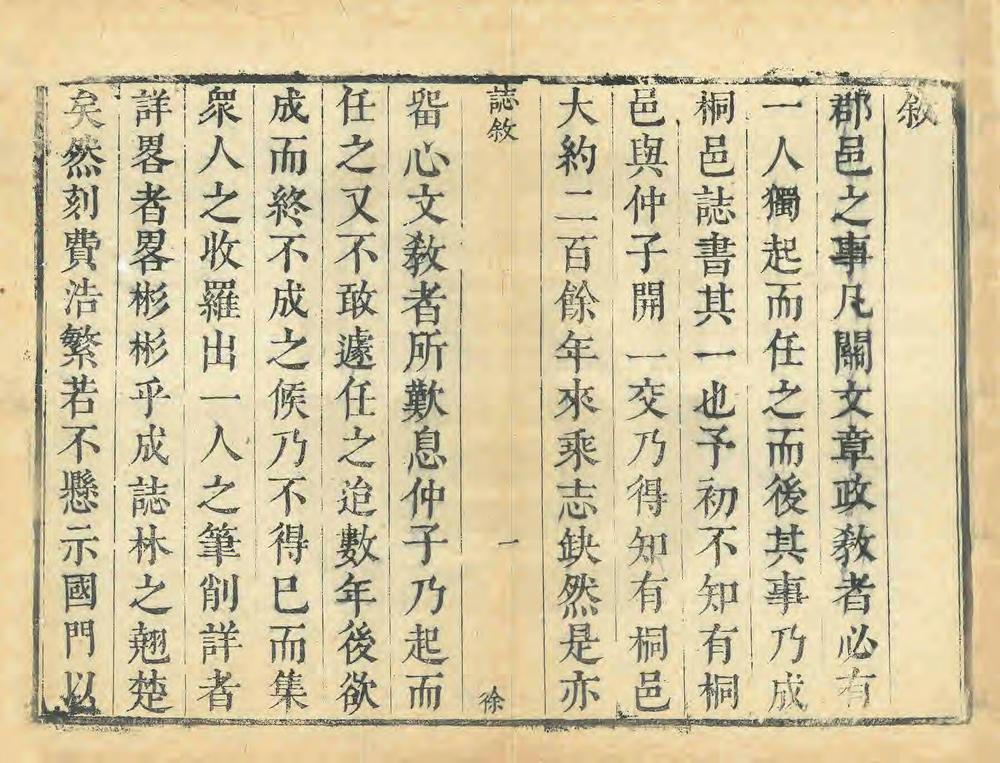 敘
郡邑之事凡關文章政敎者必有
一人獨起而任之而後其事乃成
桐邑誌書其一也予初不知有桐
邑與仲子開一交乃得知有桐邑
大約二百餘年來乘志缺然是亦
誌敘
一
徐
畱心文敎者所歎息仲子乃起而
任之又不敢遽任之迨數年後欲
成而終不成之候乃不得已而集
衆人之收羅出一人之筆削詳者
詳畧者畧彬彬乎成誌林之翹楚
矣然刻費浩繁若不懸示國門以